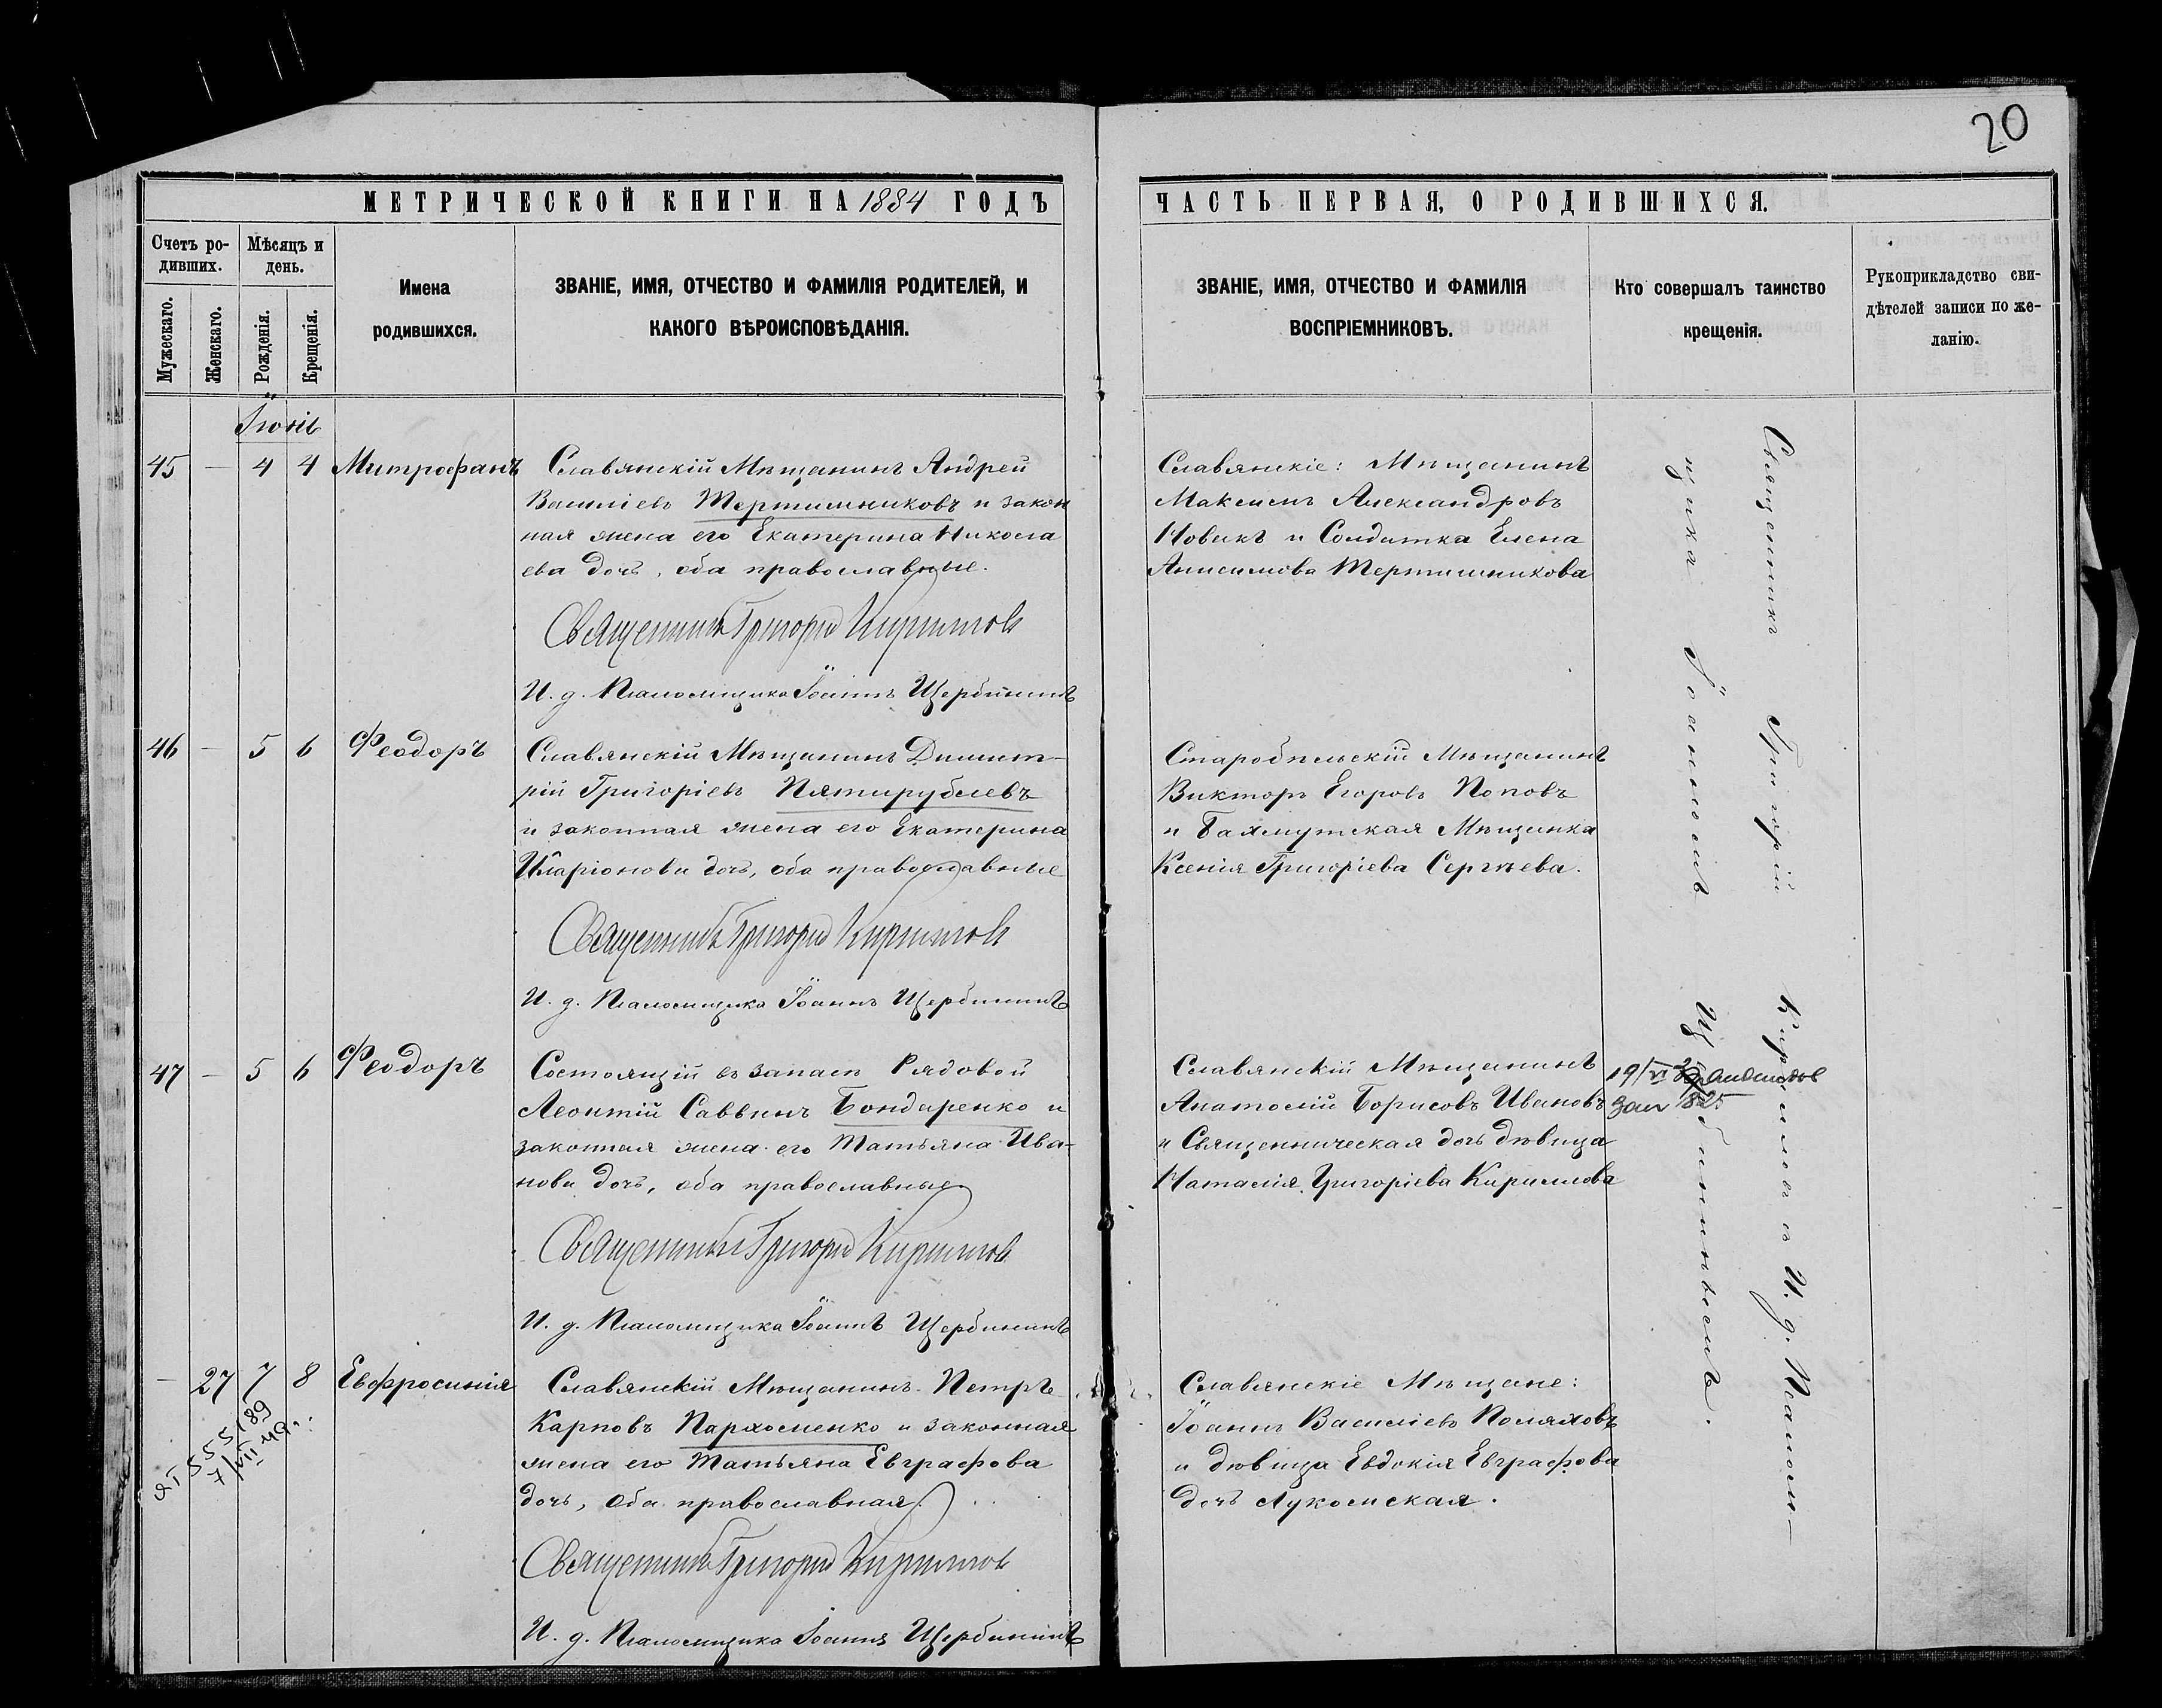 20
МЕТРИЧЕСКОЙ КНИГИ НА 1884 ГОДЪ
Счетъ ро-
дившихъ.
Мужескаго.
Женскаго.
Мѣсяцъ и
день.
Рожденія.
Крещенія.
Имена
родившихся.
ЗВАНІЕ, ИМЯ, ОТЧЕСТВО И ФАМИЛІЯ РОДИТЕЛЕЙ, И
КАКОГО ВѢРОИСПОВѢДАНІЯ.
Іюнь
45 — 4 4 Митрофанъ
Славянскій Мѣщанинъ Андрей
Василіевъ Тертишниковъ и закон
ная жена его Екатерина Никола
ева дочь, оба православные.
Священникъ Григорій Кириловъ
И. д. Псаломщика Іоаннъ Щербининъ
46 — 5 6 Феодоръ
Славянскій Мѣщанинъ Димит-
рій Григоріевъ Пятирублевъ
и законная жена его Екатерина
Иларіонова дочь, оба православные
Священникъ Григорій Кириловъ
И. д. Псаломщика Іоаннъ Щербининъ
47 — 5 6 Феодоръ
Состоящій въ запасѣ Рядовой
Леонтій Саввинъ Бондаренко и
законная жена его Татьяна Ива-
нова дочь, оба православные
Священникъ Григорій Кириловъ
И. д. Псаломщика Іоаннъ Щербининъ
— 27 7 8 Евфросинія
ЯГ 555189
7/VII 49г.
Славянскій Мѣщанинъ Петръ
Карповъ Пархоменко и законная
жена его Татьяна Евграфова
дочь, оба православная.
Священникъ Григорій Кириловъ
И. д. Псаломщика Іоаннъ Щербининъ
ЧАСТЬ ПЕРВАЯ, О РОДИВШИХСЯ.
ЗВАНІЕ, ИМЯ, ОТЧЕСТВО И ФАМИЛІЯ
ВОСПРІЕМНИКОВЪ.
Кто совершалъ таинство
крещенія.
Рукоприкладство сви-
дѣтелей записи по же-
ланію.
Славянскіе: Мѣщанинъ
Максимъ Александровъ
Новикъ и Солдатка Елена
Анисимова Тертишникова
Старобѣльскій Мѣщанинъ
Викторъ Егоровъ Поповъ
и Бахмутская Мѣщанка
Ксенія Григоріева Сергѣева.
Славянскій Мѣщанинъ
Анатолій Борисовъ Ивановъ
и Священническая дочь дѣвица
Наталія Григоріева Кирилова
Славянскіе Мѣщане:
Іоаннъ Василіевъ Поляховъ
и дѣвица Евдокія Евграфова
дочь Лукомская.
Священникъ Григорій Кириловъ съ И. д. Псалом-
щика Іоанномъ Щербининымъ.
19/VI